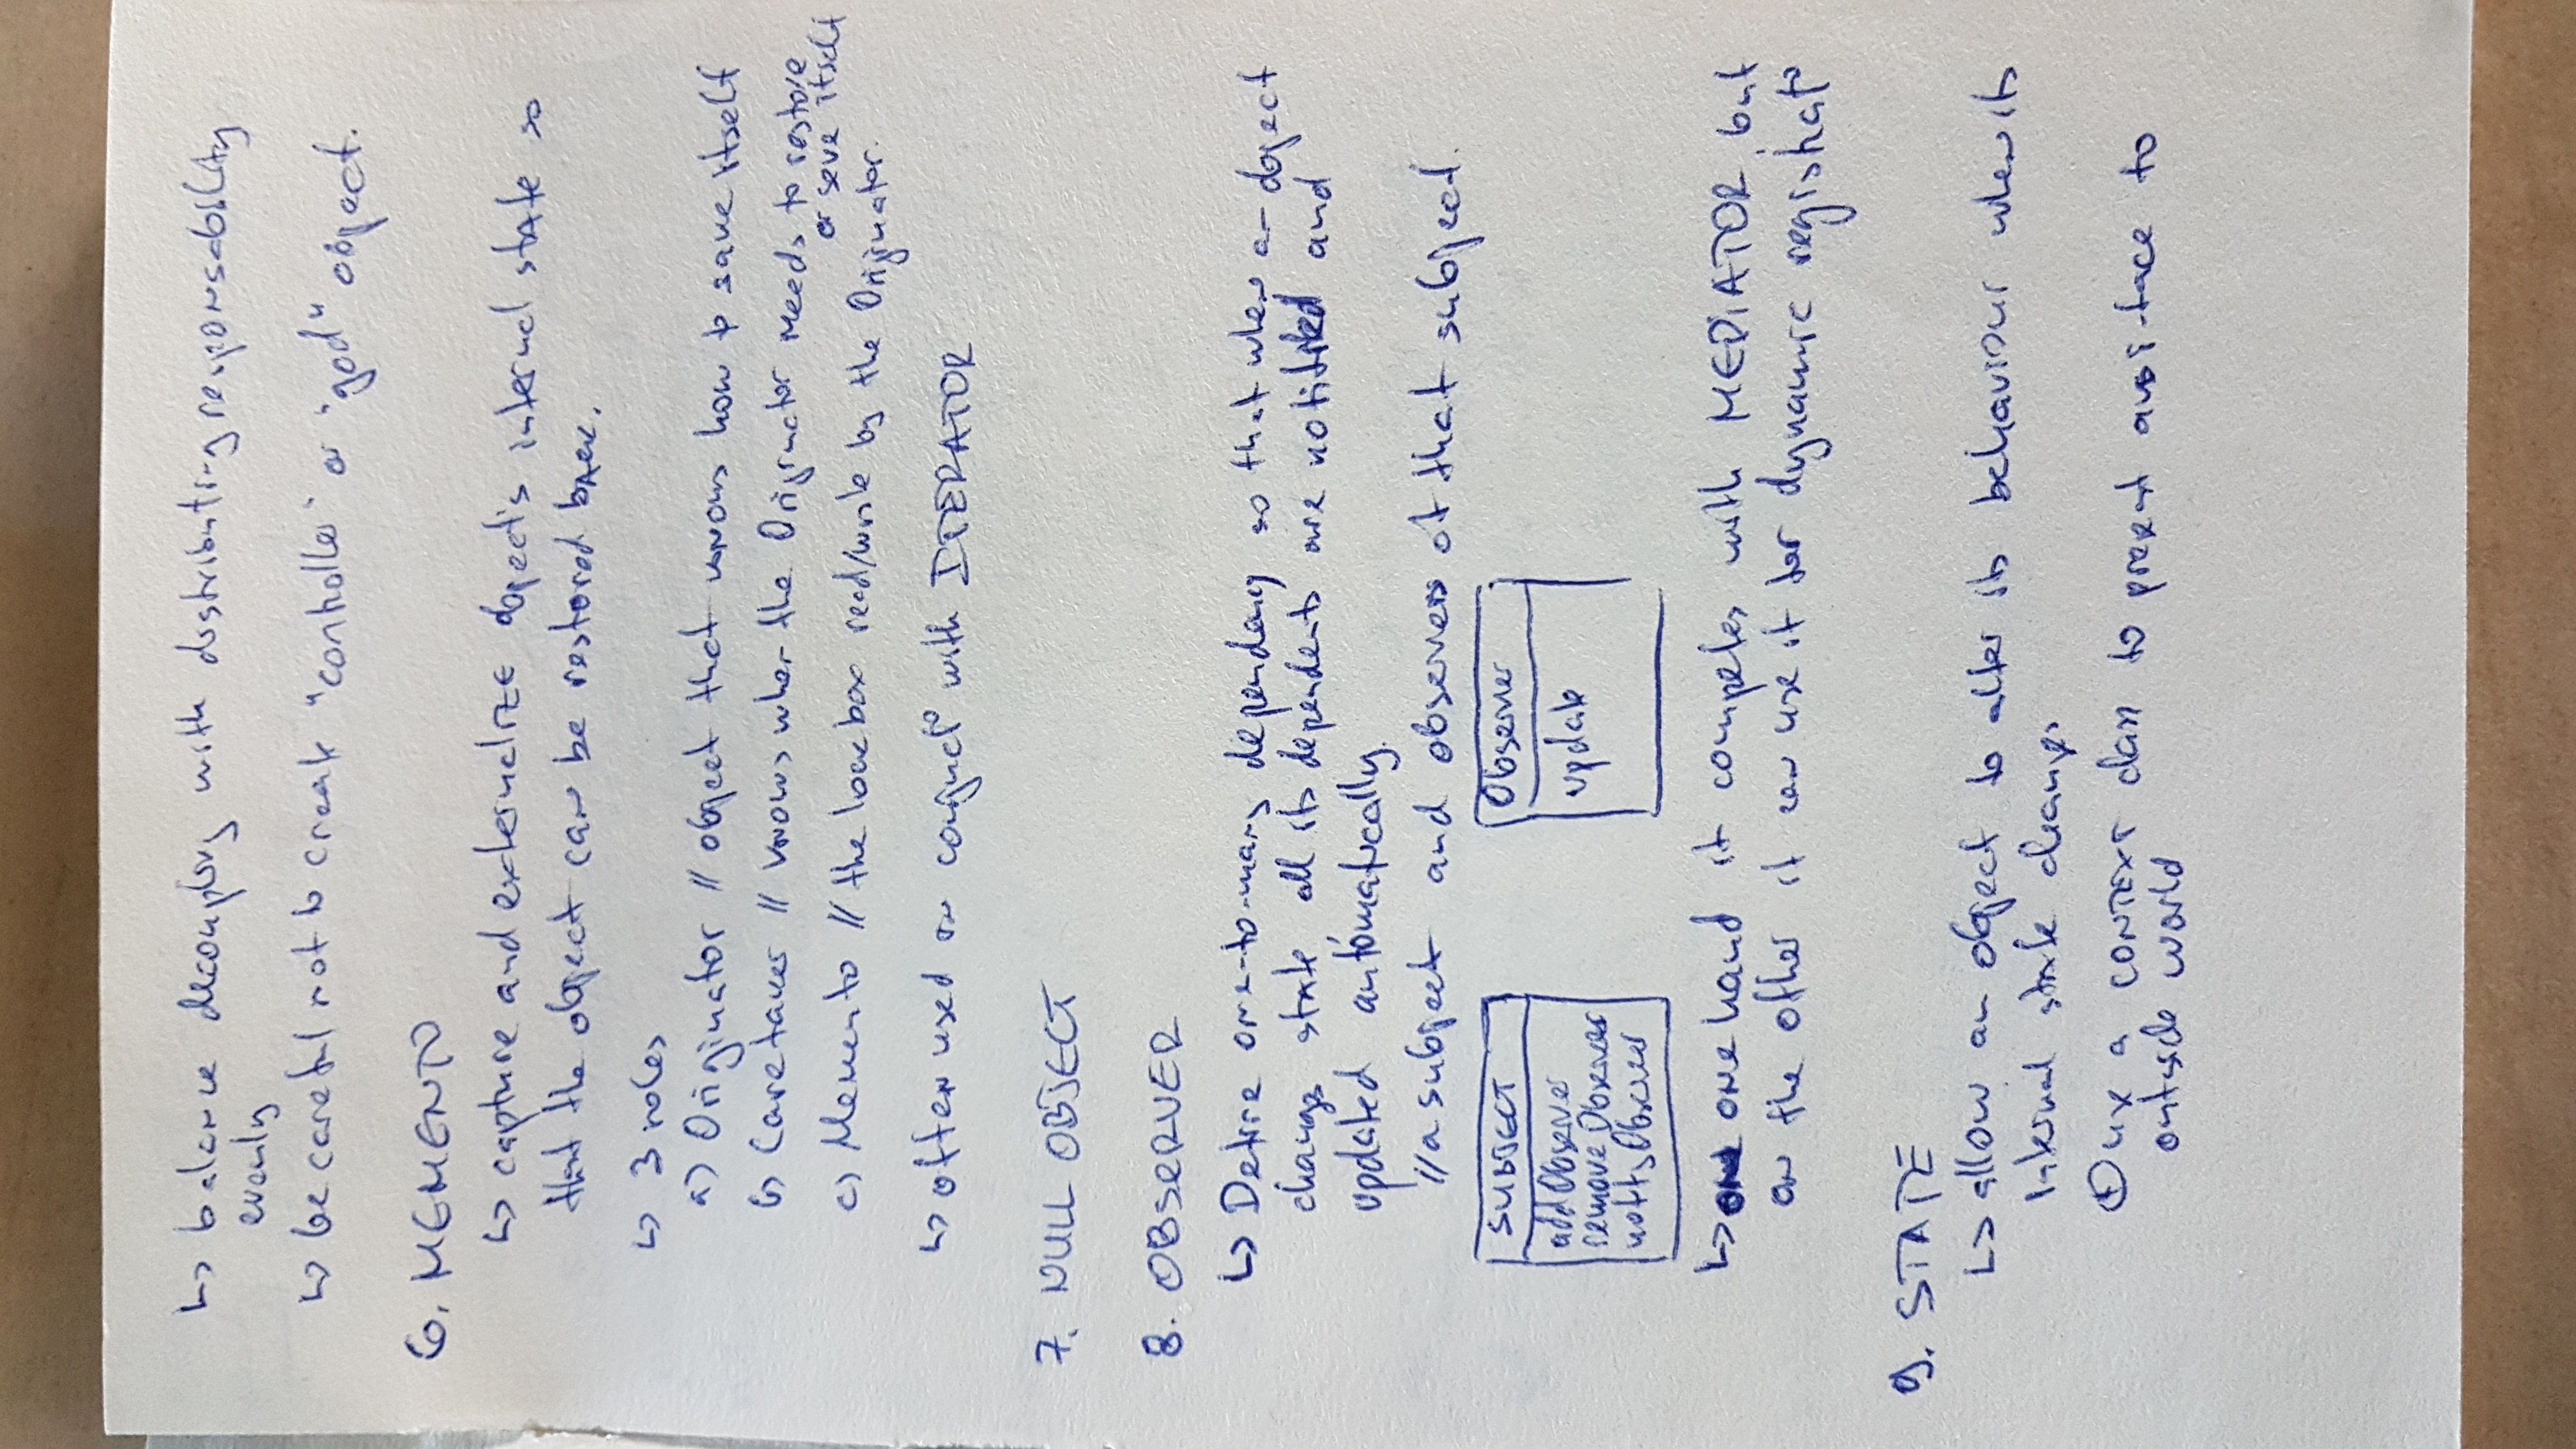 ↳ balance decoupling with distributing responsability
evenly
↳ be careful not to create "controller" or "god" object.
6. MEMENTO
↳ capture and externalize object's internal state so
that the object can be restored back.
↳ 3 roles
a) Originator // object that knows how to save itself
b) Caretaker // knows when the Originator needs to restore
or save itself
c) Memento // the lock box read/write by the Originator.
↳ often used in conjuct° with ITERATOR
7. NULL OBJECT
8. OBSERVER
↳ Define one-to-many dependency so that when an object
changes state, all its dependents are notified and
updated automatically.
// a subject and observers of that subject.
SUBJECT
addObserver
removeObserver
notifyObserver
Observer
update
↳ one hand it competes with MEDIATOR, but
on the other it can use it for dynamic registrat°
9. STATE
↳ allow an object to alter its behaviour when its
internal state changes
use a CONTEXT class to present to
outside world